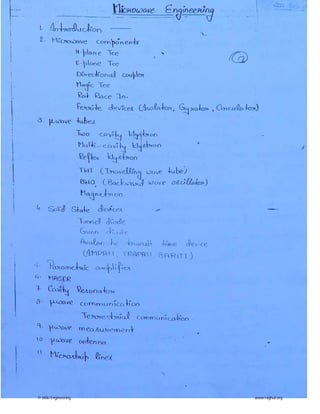 Microwave Engineering
1. Introduction.
2. Microwave components
H-plane Tee
E-plane Tee
Directional coupler
Magic Tee
Rat Race Jn.
Ferrite devices (Isolator, Gyrator, Circulator)
3. μwave tubes
Two cavity klystron
Multi-cavity klystron
Reflex klystron
TWT (Travelling wave tube)
BWO (Backward wave oscillator)
Magnetron
4. Solid State devices
Tunnel diode
Gunn diode
Avalanche transit time device
(IMPATT, TRAPATT, BARITT)
5. Parametric amplifier
6. MASER
7. Cavity Resonators
8. μwave communication
Terrestrial communication
9. μwave measurement
10 μwave antenna
11 Microstrip lines
www.raghul.org